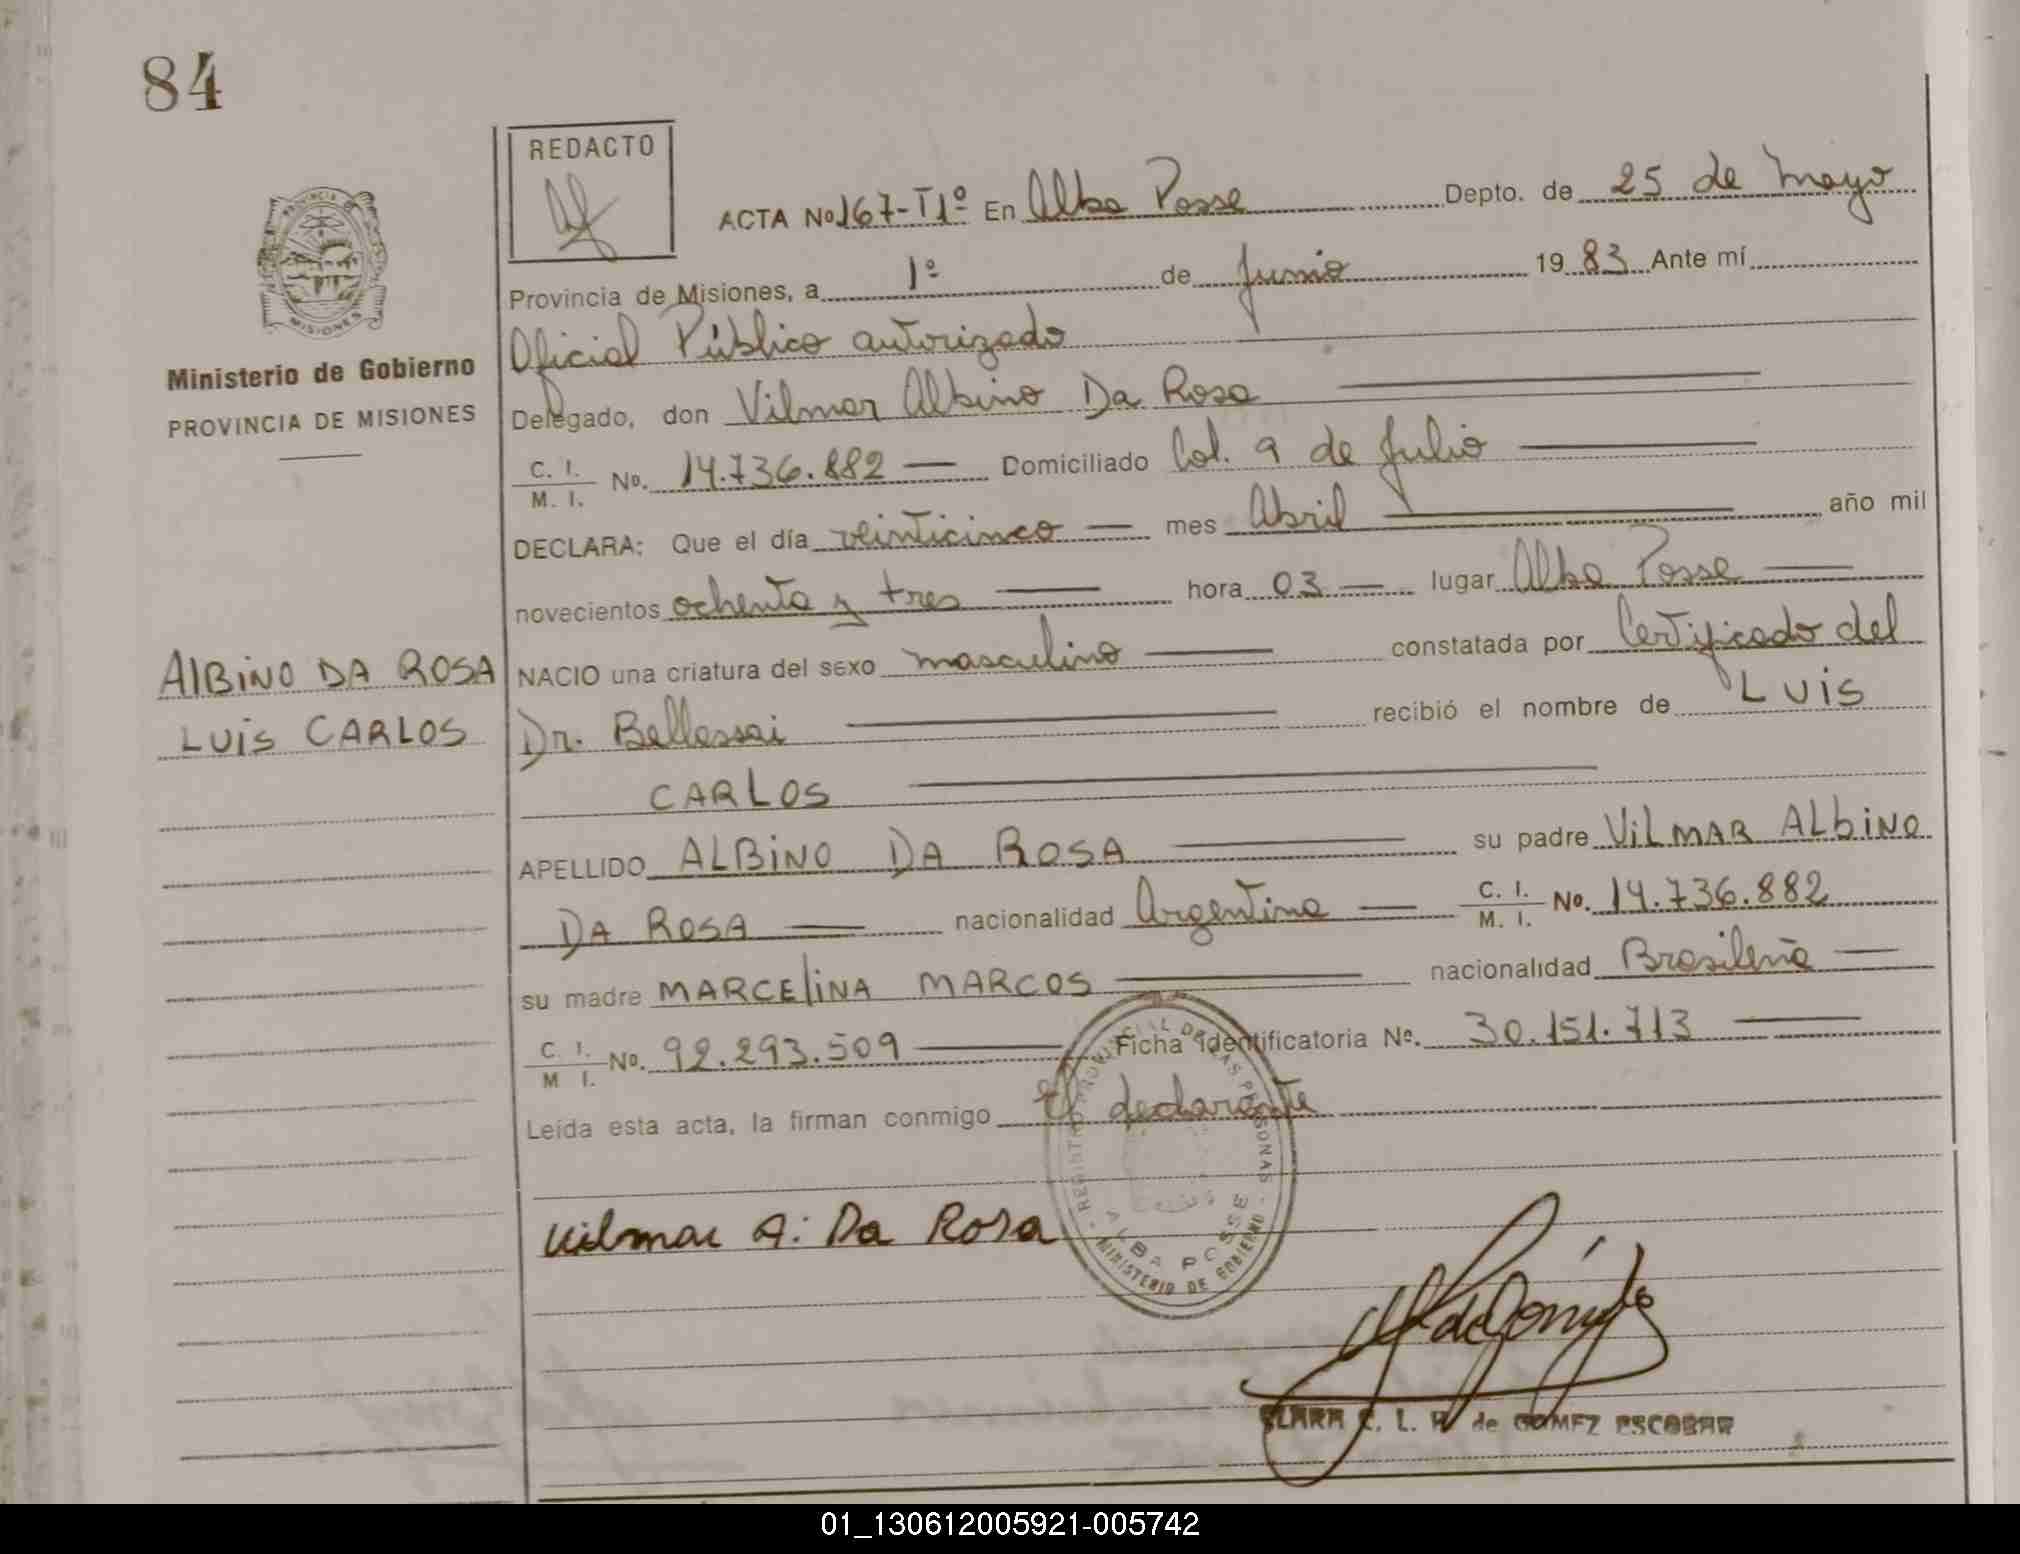 84
REDACTO
PROVINCIA DE
MISIONES
Ministerio de Gobierno
PROVINCIA DE MISIONES
ALBINO DA ROSA
LUIS CARLOS
ACTA Nº 167-T1º En Alba Posse Depto. de 25 de Mayo
Provincia de Misiones, a 1º de Junio 1983 Ante mí
Oficial Público autorizado
Delegado, don Vilmar Albino Da Rosa
C. I. / M. I. Nº. 14.736.882 — Domiciliado Col. 9 de Julio
DECLARA: Que el día veinticinco — mes Abril — año mil
novecientos ochenta y tres — hora 03 — lugar Alba Posse —
NACIO una criatura del sexo masculino — constatada por Certificado del
Dr. Bellassai — recibió el nombre de LUIS
CARLOS
APELLIDO ALBINO DA ROSA — su padre VILMAR ALBINO
DA ROSA — nacionalidad Argentina — C. I. / M. I. Nº. 14.736.882
su madre MARCELINA MARCOS — nacionalidad Brasileña —
C. I. / M I. Nº. 92.293.509 — Ficha Identificatoria Nº. 30.151.713 —
Leída esta acta, la firman conmigo el declarante
REGISTRO PROVINCIAL DE LAS PERSONAS
ALBA POSSE
MINISTERIO DE GOBIERNO
Vilmar A. Da Rosa
CLARA C. L. R. de GOMEZ ESCOBAR
01_130612005921-005742